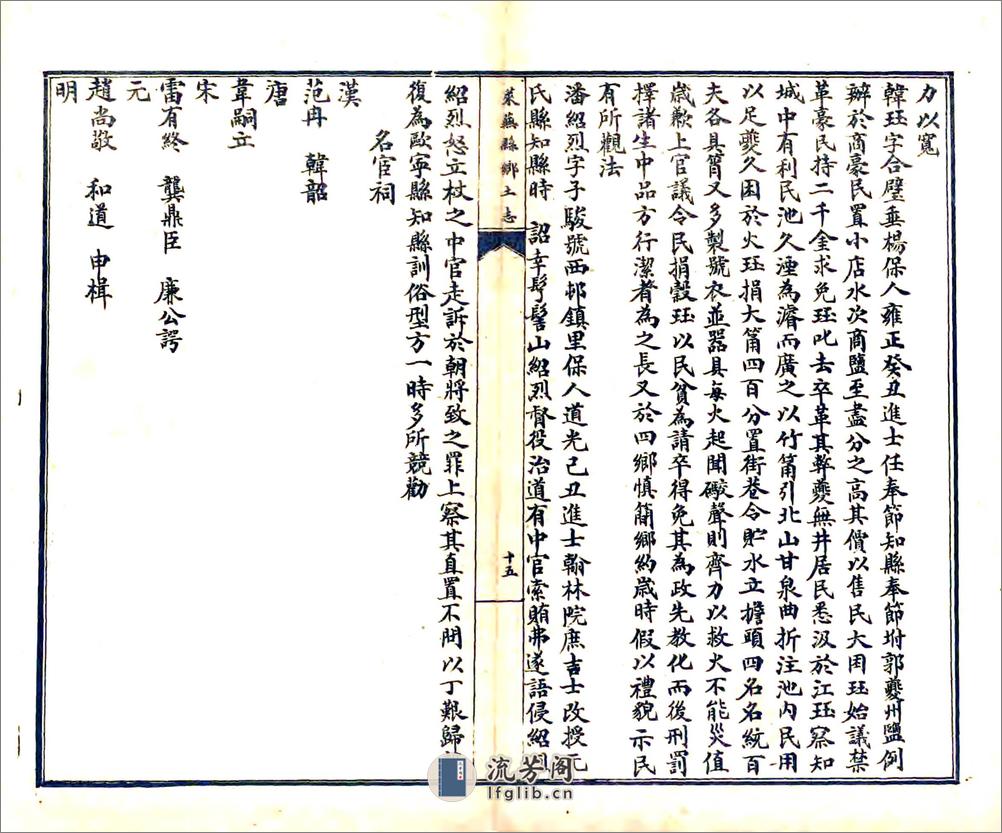 力以寬
韓珏字合璧垂楊保人雍正癸丑進士任奉節知縣奉節坿郭夔州鹽例
辦於商豪民置小店水次商鹽至盡分之高其價以售民大困珏始議禁
革豪民持二千金求免珏叱去卒革其弊夔無井居民悉汲於江珏察知
城中有利民池久湮為濬而廣之以竹筩引北山甘泉曲折注池內民用
以足夔久困於火珏捐大筩四百分置街巷令貯水立擔頭四名名統百
夫各具筩又多製號衣並器具每火起聞礮聲則齊力以救火不能災值
歲歉上官議令民捐穀珏以民貧為請卒得免其為政先教化而後刑罰
擇諸生中品方行潔者為之長又於四鄉慎簡鄉約歲時假以禮貌示民
有所觀法
潘紹烈字子駿號西邨鎮里保人道光己丑進士翰林院庶吉士改授元
氏縣知縣時 詔幸髣髻山紹烈督役治道有中官索賄弗遂語侵紹
萊蕪縣鄉土志
十五
紹烈怒立杖之中官走訴於朝將致之罪上察其直置不問以丁艱歸
復為歐寧縣知縣訓俗型方一時多所競勸
名宦祠
漢
范冉 韓韶
唐
韋嗣立
宋
雷有終 龔鼎臣 廉公諤
元
趙尚敬 和道 申楫
明
流芳阁
lfglib.cn